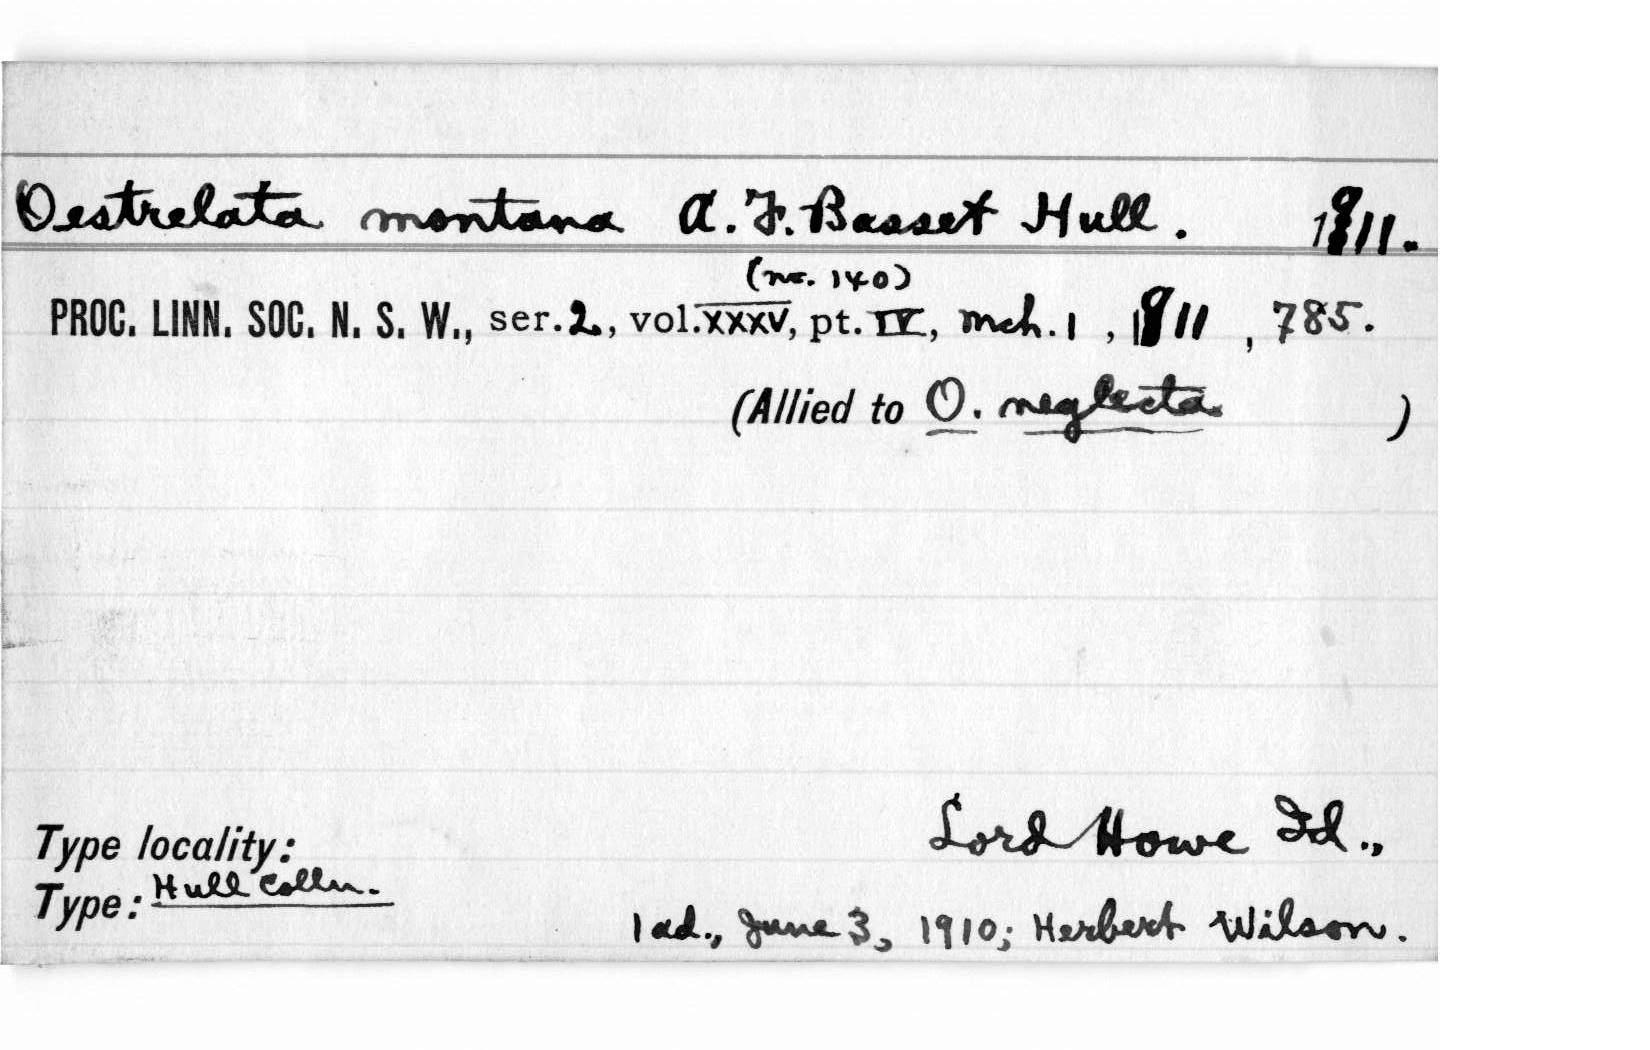 Oestrelata montana A. F. Basset Hull. 1911.
(no. 140)
PROC. LINN. SOC. N. S. W., ser. 2, vol. XXXV, pt. IV, mch. 1, 1911, 785.
(Allied to O. neglecta )
Lord Howe Id.,
Type locality:
Type: Hull Colln.
1 ad., June 3, 1910; Herbert Wilson.